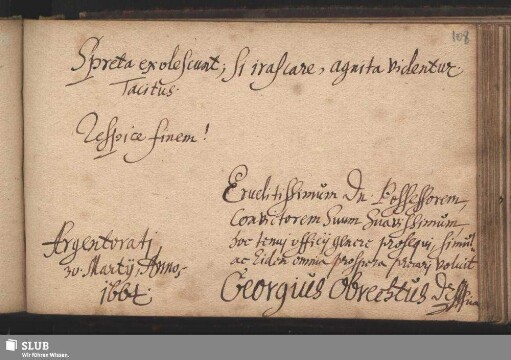 108
Spreta exolescunt; si irascare, agnita videntur
Tacitus.
Respice finem!
Eruditissimum Dn. Possessorem,
Convictorem Suum Suavissimum
hoc tenuj officij genere prosequi, simul
ac Eidem omnia prospera precarj voluit
Georgius Obrechtus
Argentoratj
30. Martij, Anno,
1664.
SLUB
Wir führen Wissen.